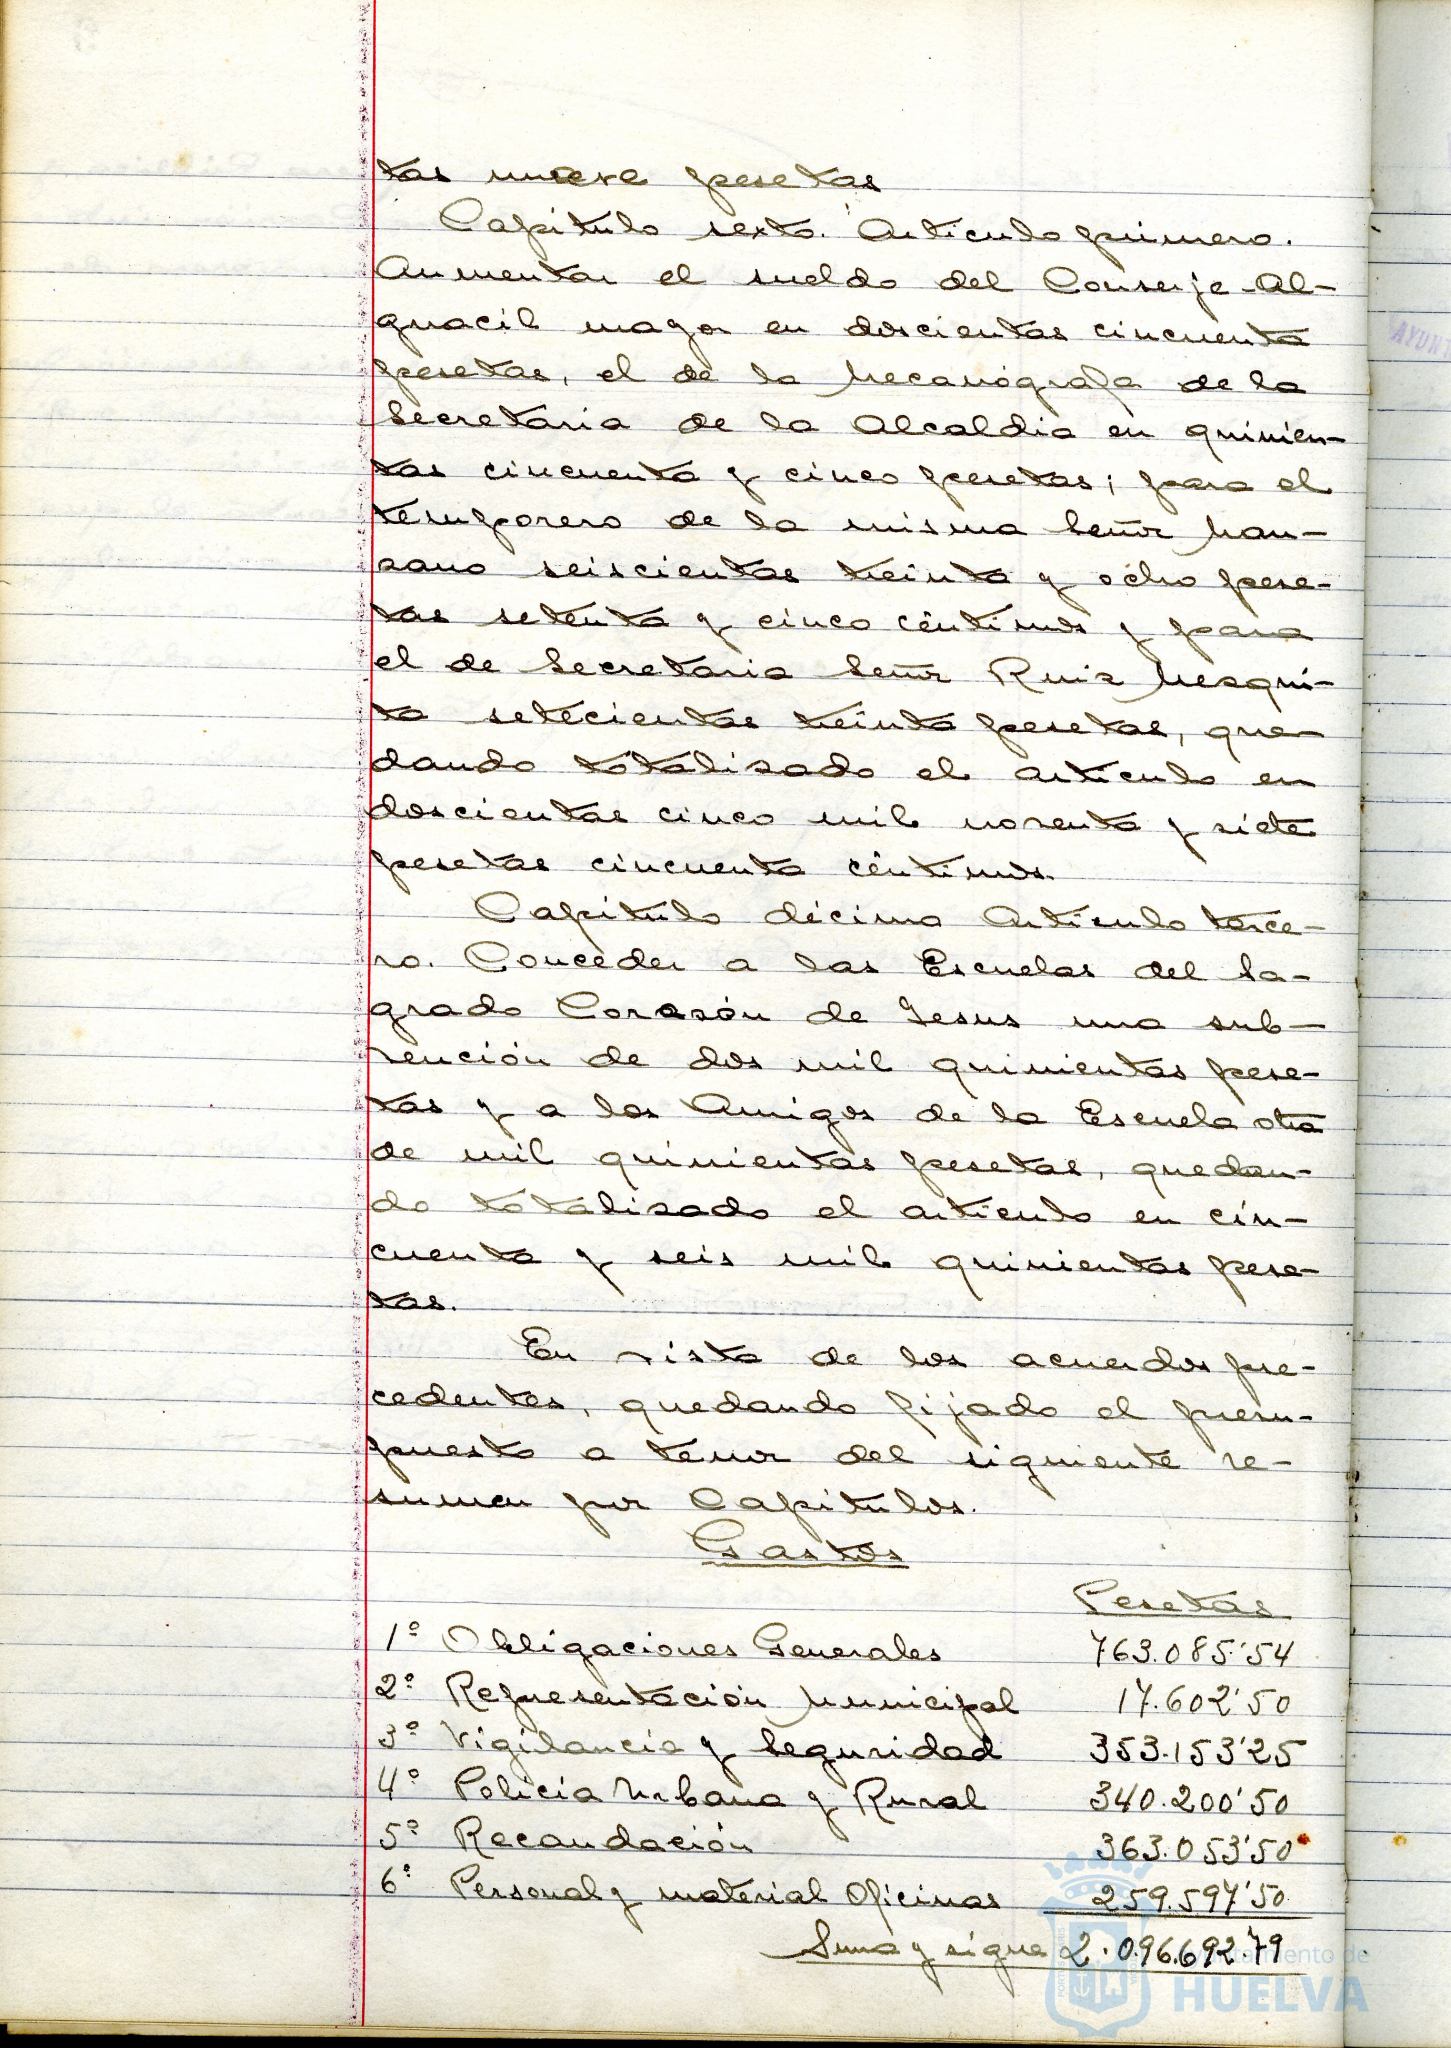 tas nueve pesetas
Capítulo sexto. Artículo primero.
Aumentar el sueldo del Conserje-Al-
guacil mayor en doscientas cincuenta
pesetas, el de la Mecanógrafa de la
Secretaria de la Alcaldia en quinien-
tas cincuenta y cinco pesetas; para el
temporero de la misma Señor Man-
zano seiscientas treinta y ocho pese-
tas setenta y cinco céntimos y para
el de Secretaria Señor Ruiz Mezqui-
ta setecientas treinta pesetas, que-
dando totalizado el artículo en
doscientas cinco mil noventa y siete
pesetas cincuenta céntimos.
Capítulo décimo Artículo terce-
ro. Conceder a las Escuelas del Sa-
grado Corazón de Jesus una sub-
vención de dos mil quinientas pese-
tas y a los Amigos de la Escuela otra
de mil quinientas pesetas, quedan-
do totalizado el artículo en cin-
cuenta y seis mil quinientas pese-
tas.
En vista de los acuerdos pre-
cedentes, quedando fijado el presu-
puesto a tenor del siguiente re-
sumen por Capítulos.
Gastos
Pesetas
1º Obligaciones Generales 763.085'54
2º Representación Municipal 17.602'50
3º Vigilancia y Seguridad 353.153'25
4º Policía Urbana y Rural 340.200'50
5º Recaudación 363.053'50
6º Personal y material Oficinas 259.597'50
Suma y sigue 2.096.692'79
Ayuntamiento de
HUELVA
AYUNT